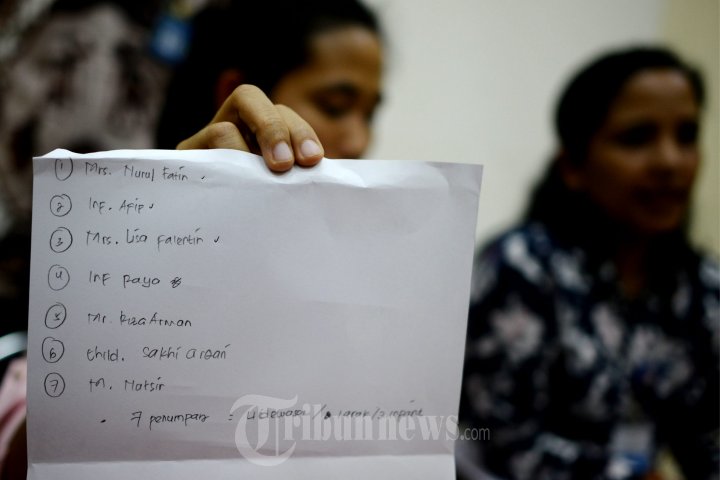 ① Mrs. Nurul Fatin ✓
② Inf. Afif ✓
③ Mrs. Lisa Falentin ✓
④ Inf Raya
⑤ Mr. Riza Arman
⑥ Child. Sakhi
⑦ M. Natsir
7 penumpang = 4 dewasa/1 anak/2 infant
Tribunnews.com